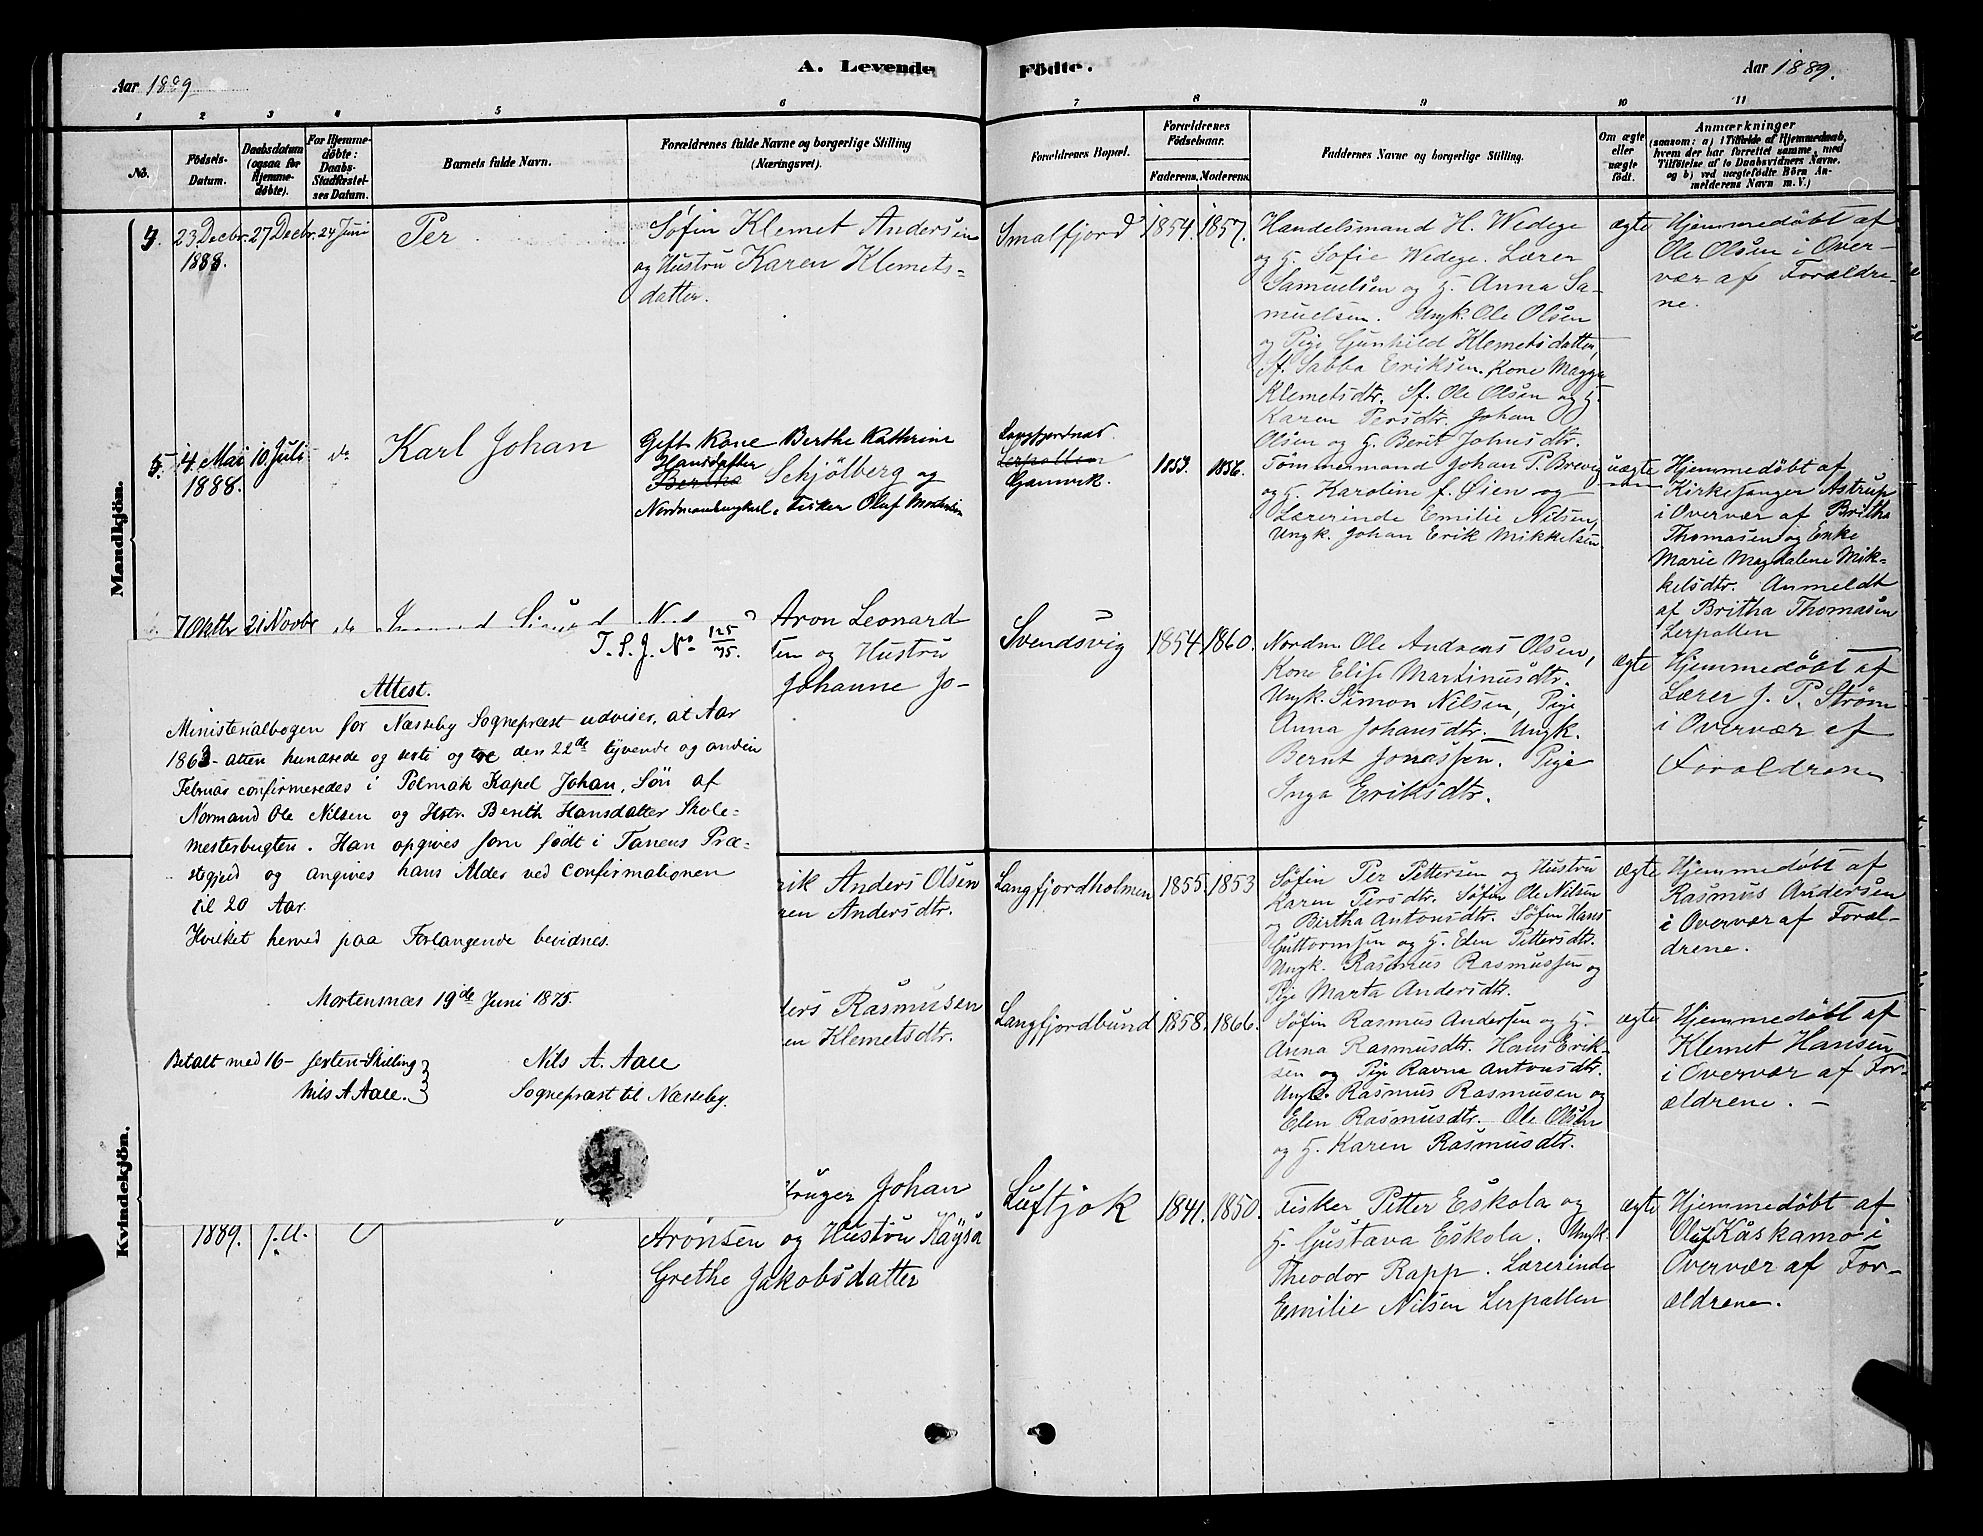 Aar 1889
A. Levende
Födte.
Aar 1889.
1 2 3 4 5 6 7 8 9 10 11
No.
Födsels-
Datum.
Daabsdatum
(ogsaa for
Hjemme-
döbte).
For Hjemme-
döbte:
Daabs-
Stadfæstel-
ses Datum.
Barnets fulde Navn.
Forældrenes fulde Navne og borgerlige Stilling
(Næringsvei).
Forældrenes Bopæl.
Forældrenes
Födselsaar.
Faderens. Moderens.
Faddernes Navne og borgerlige Stilling.
Om ægte
eller
uægte
födt.
Anmærkninger
(saasom: a) i Tilfælde af Hjemmedaab,
hvem der har forrettet samme, med
Tilföielse af to Daabsvidners Navne.
og b) ved uægtefödte Börn An-
melderens Navn m. V.)
Mandkjön.
23 Decbr.
1888.
27 Decbr.
24 Juni
Per
Søfin Klemet Andersen
og Hustru Karen Klemets-
datter.
Smalfjord
1854. 1857.
Handelsmand H. Wedege
og H. Sofie Wedege. Lærer
Samuelsen og H. Anna Sa-
muelsen. Ungk. Ole Olsen
og Pige Gunhild Klemetsdatter,
Sf. Sabba Eriksen. Kone Magga
Klemetsdtr. Sf. Ole Olsen og H.
Karen Persdtr. Johan
Olsen og H. Berit Johnsdtr.
ægte
Hjemmedøbt af
Ole Olsen i Over-
vær af Forældre-
ne.
5.
14. Mai
1888.
10 Juli
do
Karl Johan
Gift Kone Berthe Kathrine
Hansdatter
Schjølberg og
Nordmandungkarl, Fisker Oluf Mortensen
Langfjordnes.
Lerpallen
Gamvik.
1853. 1856.
Tømmermand Johan P. Brevig
og H. Karoline f. Øien og
Lærerinde Emilie Nilsen,
Ungk. Johan Erik Mikkelsen
uægte
Hjemmedøbt af
Kirkesanger Astrup
i Overvær af Britha
Thomasen og Enke
Marie Magdalene Mik-
kelsdtr. Anmeldt
af Britha Thomasen
Lerpallen
7 Oktbr
21 Novbr
do
Aron Leonard
sen og Hustru
Johanne Jo-
Svendsvig
1854 1860.
Nordm. Ole Andreas Olsen,
Kone Elise Martinusdtr.
Ungk. Simon Nilsen, Pige
Anna Johansdtr. Ungk.
Bernt Jonassen. Pige
Inga Eriksdtr.
ægte
Hjemmedøbt af
Lærer J. P. Strøm
i Overvær af
Forældrene
T. S. J. No 125/75.
Attest.
Ministerialbogen for Næsseby Sognepræst udviser, at Aar
1863 - atten hundrede og sexti og tre den 22de tyvende og anden
Februar confirmeredes i Polmak Kapel Johan, Søn af
Normand Ole Nilsen og Hstr. Berith Hansdatter Skole-
mesterbugten. Han opgives som født i Tanens Præ-
stegjeld og angives hans Alder ved Confirmationen
til 20 Aar.
Hvilket herved paa Forlangende bevidnes.
Mortensnæs 19de Juni 1875.
Betalt med 16 - sexten - Skilling
Nils A Aall.
Nils A. Aall
Sognepræst til Næsseby.
Kvindekjön.
rik Anders Olsen
ren Andersdtr.
Langfjordholmen
1855. 1853
Søfin Per Pettersen og Hustru
Karen Persdtr. Søfin Ole Nilsen
og Birtha Antonsdtr. Søfin Hans
Guttormsen og H. Elen Pettersdtr.
Ungk. Rasmus Rasmussen og
Pige Marta Andersdtr.
ægte
Hjemmedøbt af
Rasmus Andersen
i Overvær af Foræl-
drene.
ders Rasmusen
en Klemetsdtr.
Langfjordbund
1858. 1866.
Søfin Rasmus Andersen og H.
Anna Rasmusdtr. Hans Erik-
sen og Pige Ravna Antonsdtr.
Ungk. Rasmus Rasmusen og
Elen Rasmusdtr. Ole Olsen
og H. Karen Rasmusdtr.
ægte
Hjemmedøbt af
Klemet Hansen
i Overvær af For-
ældrene. -
1889.
bruger Johan
Aronsen og Hustru Kaysa
Grethe Jakobsdatter
Luftjok
1841. 1850.
Fisker Petter Eskola og
H. Gustava Eskola. Ungk.
Theodor Rapp. Lærerinde
Emilie Nilsen Lerpallen
ægte
Hjemmedøbt af
Oluf Kaskamo i
Overvær af For-
ældrene.